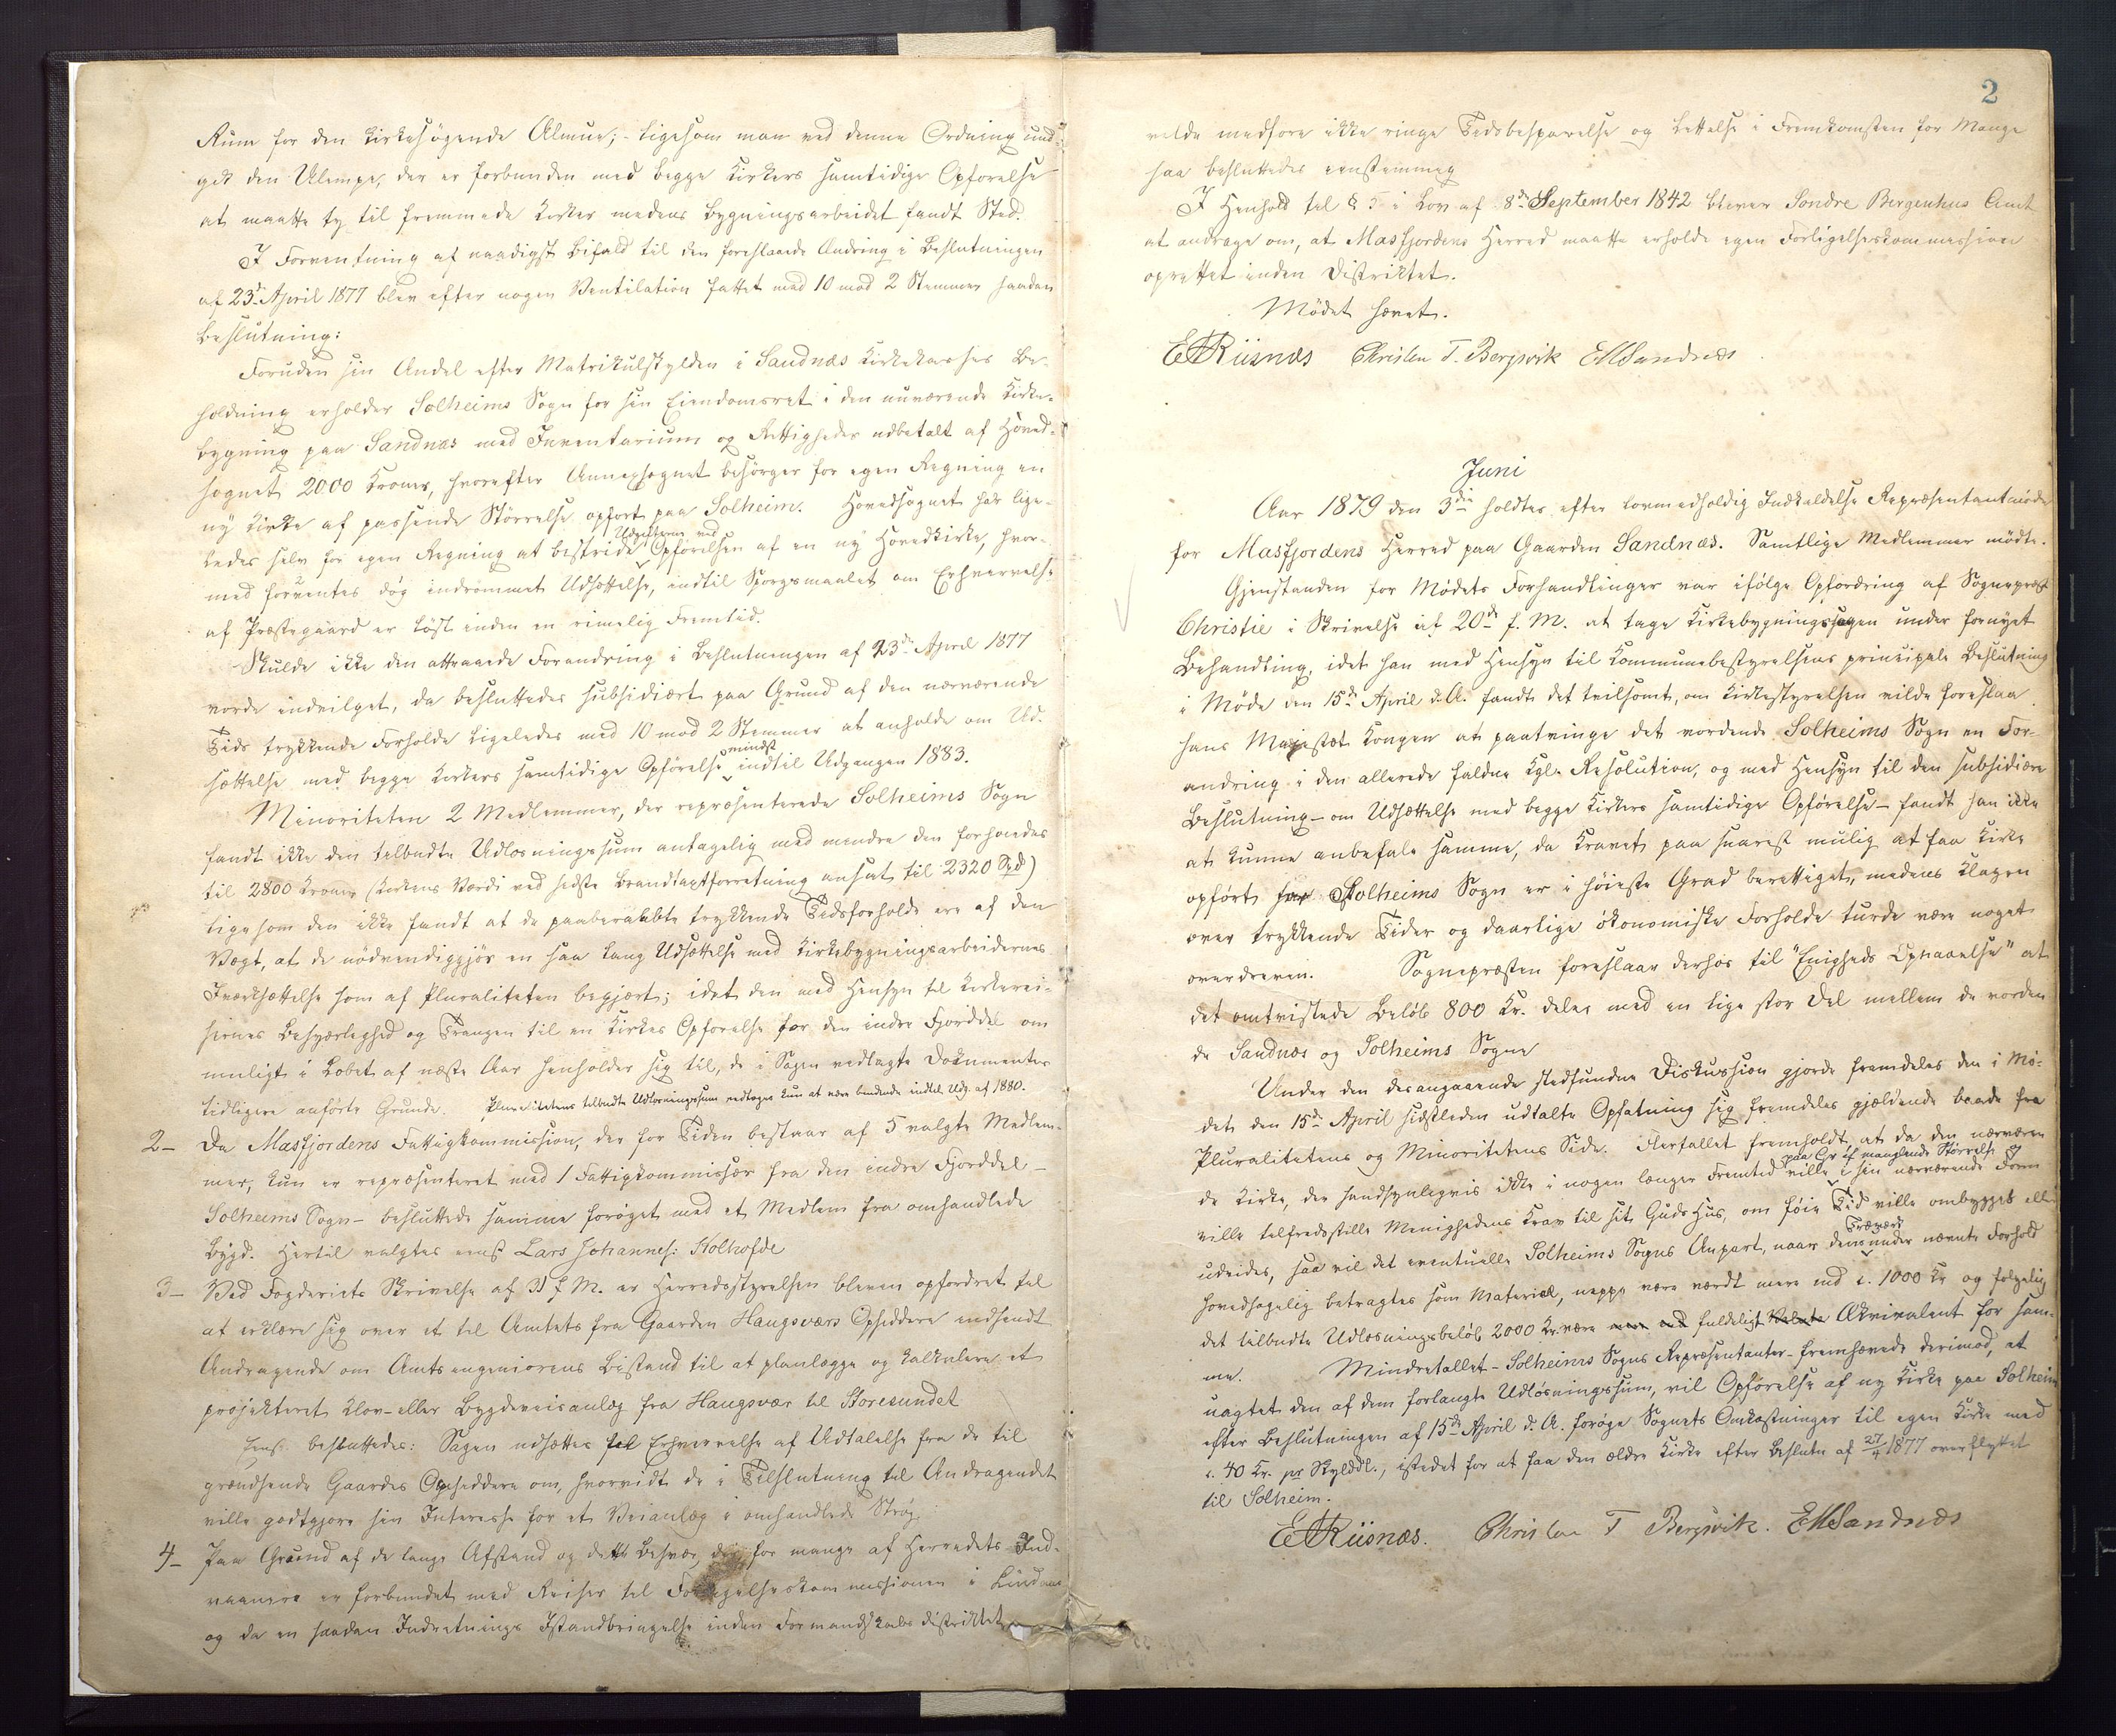 Rum for den kirkesøgende Almue; - ligesom man ved denne Ordning und-
gik den Ulempe, der er forbunden med begge Kirkers samtidige Opførelse
at maatte ty til fremmede Kirker medens Bygningsarbeidet fandt Sted.
I Forventning af naadigst Bifald til den foreslaaede Ændring i Beslutningen
af 23de April 1877 blev efter nogen Ventilation fattet med 10 mod 2 Stemmer saadan
Beslutning:
Foruden sin Andel efter Matrikulskylden i Sandnæs Kirkekasses Be-
holdning erholder Solheims Sogn for sin Eiendomsret i den nuværende Kirke-
bygning paa Sandnæs med Inventarium og Rettigheder udbetalt af Hoved-
sognet 2000 Kroner, hvorefter Annexsognet besørger for egen Regning en
ny Kirke af passende Størrelse opført paa Solheim. Hovedsognet har lige-
ledes selv for egen Regning at bestride Udgifterne ved Opførelsen af en ny Hovedkirke, hvor-
med forventes dog indrømmet Udsættelse, indtil Spørgsmaalet om Erhvervelse
af Præstegaard er løst inden en rimelig Fremtid.
Skulde ikke den attraaede Forandring i Beslutningen af 23de April 1877
vorde indvilget, da besluttedes subsidiært paa Grund af den nærværende
Tids trykkende Forholde ligeledes med 10 mod 2 Stemmer at anholde om Ud-
sættelse med begge Kirkers samtidige Opførelse mindst indtil Udgangen 1883.
Minoriteten 2 Medlemmer, der repræsenterede Solheims Sogn
fandt ikke den tilbudte Udløsningssum antagelig med mindre den forhøiedes
til 2800 Kroner (Kirkens Værdi ved sidste Brandtaxtforretning ansat til 2320 Spd)
ligesom den ikke fandt at de paaberaabte trykkende Tidsforholde ere af den
Vægt, at de nødvendiggjør en saa lang Udsættelse med Kirkebygningsarbeidernes
Iværksættelse som af Pluraliteten begjært; idet den med Hensyn til Kirkerei-
sernes Besværlighed og Trangen til en Kirkes Opførelse for den indre Fjorddel om
muligt i Løbet af næste Aar henholder sig til, de i Sagen vedlagte Dokumenter
tidligere anførte Grunde. Pluralitetens tilbudte Udløsningssum vedtoges kun at være bindende indtil Udg. af 1880.
2- Da Masfjordens Fattigkommission, der for Tiden bestaar af 5 valgte Medlem-
mer, kun er repræsenteret med 1 Fattigkommissær fra den indre Fjorddel -
Solheims Sogn - besluttede samme forøget med et Medlem fra omhandlede
Bygd. Hertil valgtes enst Lars Johannes: Stolhofde
3- Ved Fogderiets Skrivelse af 31 f. M. er Herredsstyrelsen bleven opfordret til
at erklære sig over et til Amtets fra Gaarden Haugsværs Opsiddere indsendt
Andragende om Amtsingeniørens Bistand til at planlægge og kalkulere et
projekteret Kløv- eller Bygdeveisanlæg fra Haugsvær til Storesundet
Enst. besluttedes: Sagen udsættes til Erhvervelse af Udtalelse fra de til
grændsende Gaardes Opsiddere om, hvorvidt de i Tilslutning til Andragendet
ville godtgjøre sin Interesse for et Veianlæg i omhandlede Strøg.
4- Paa Grund af de lange Afstand og dette Besvær, der for mange af Herredets Ind-
vaanere er forbundet med Reiser til Forligelseskommissionen i Lindaas
og da en saadan Indretnings Istandbringelse inden Formandskabsdistriktet
2
vilde medføre ikke ringe Tidsbesparelse og Lettelse i Fremkomsten for Mange
saa besluttedes eenstemmig
I Henhold til § 5 i Lov af 8de September 1842 bliver Søndre Bergenhus Amt
at andrage om, at Masfjordens Herred maatte erholde egen Forligelseskommission
oprettet inden Distriktet.
Mødet hævet.
E Riisnæs Christen T. Bergsvik EMSandnæs
Juni
Aar 1879 den 3die holdtes efter lovmedholdig Indkaldelse Repræsentantmøde
for Masfjordens Herred paa Gaarden Sandnæs. Samtlige Medlemmer mødte.
Gjenstanden for Mødets Forhandlinger var ifølge Opfordring af Sognepræst
Christie i Skrivelse af 20de f. M. at tage Kirkebygningssagen under fornyet
Behandling, idet han med Hensyn til Kommunebestyrelsens principale Beslutning
i Møde den 15de April d.A. fandt det tvilsomt, om Kirkestyrelsen vilde foreslaa
hans Majestæt Kongen at paatvinge det vordende Solheims Sogn en For-
andring i den allerede faldne Kgl. Resolution, og med Hensyn til den subsidiære
Beslutning - om Udsættelse med begge Kirkers samtidige Opførelse - fandt han ikke
at kunne anbefale samme, da Kravet paa snarest mulig at faa Kirke
opført for Solheims Sogn er i høieste Grad berettiget, medens Klagen
over trykkende Tider og daarlige økonomiske Forholde turde være noget
overdreven. Sognepræsten foreslaar derhos til "Enigheds Opnaaelse" at
det omtvistede Beløb 800 Kr. deles med en lige stor Del mellem de vorden
de Sandnæs og Solheims Sogne
Under den desangaaende stedfundne Diskussion gjorde fremdeles den i Mø-
det den 15de April sidstleden udtalte Opfatning sig fremdeles gjældende baade fra
Pluralitetens og Minoritetens Side. Flertallet fremholdt, at da den nærværen
de Kirke, der sandsynligvis ikke i nogen længer Fremtid ville paa Gr. af manglende Størrelse og i sin nærværende Form
ville tilfredsstille Menighedens Krav til sit Guds Hus, om føie Tid ville ombygges eller
udvides, saa vil det eventuelle Solheims Sogns Anpart, naar dens Træværk under nævnte Forhold
hovedsagelig betragtes som Material, neppe være værdt mere end c. 1000 Kr og følgelig
det tilbudte Udløsningsbeløb 2000 Kr. være fuldeligt Ækvivalent for sam-
me. Mindretallet - Solheims Sogns Repræsentanter - fremhævede derimod, at
uagtet den af dem forlangte Udløsningssum, vil Opførelse af ny Kirke paa Solheim
efter Beslutningen af 15de April d. A. forøge Sognets Omkostninger til egen Kirke med
c. 40 Kr. pr Skylddl., istedet for at faa den ældre Kirke efter Beslutn af 27/4 1877 overflyttet
til Solheim.
E Riisnæs. Christen T Bergsvik. EMSandnæs